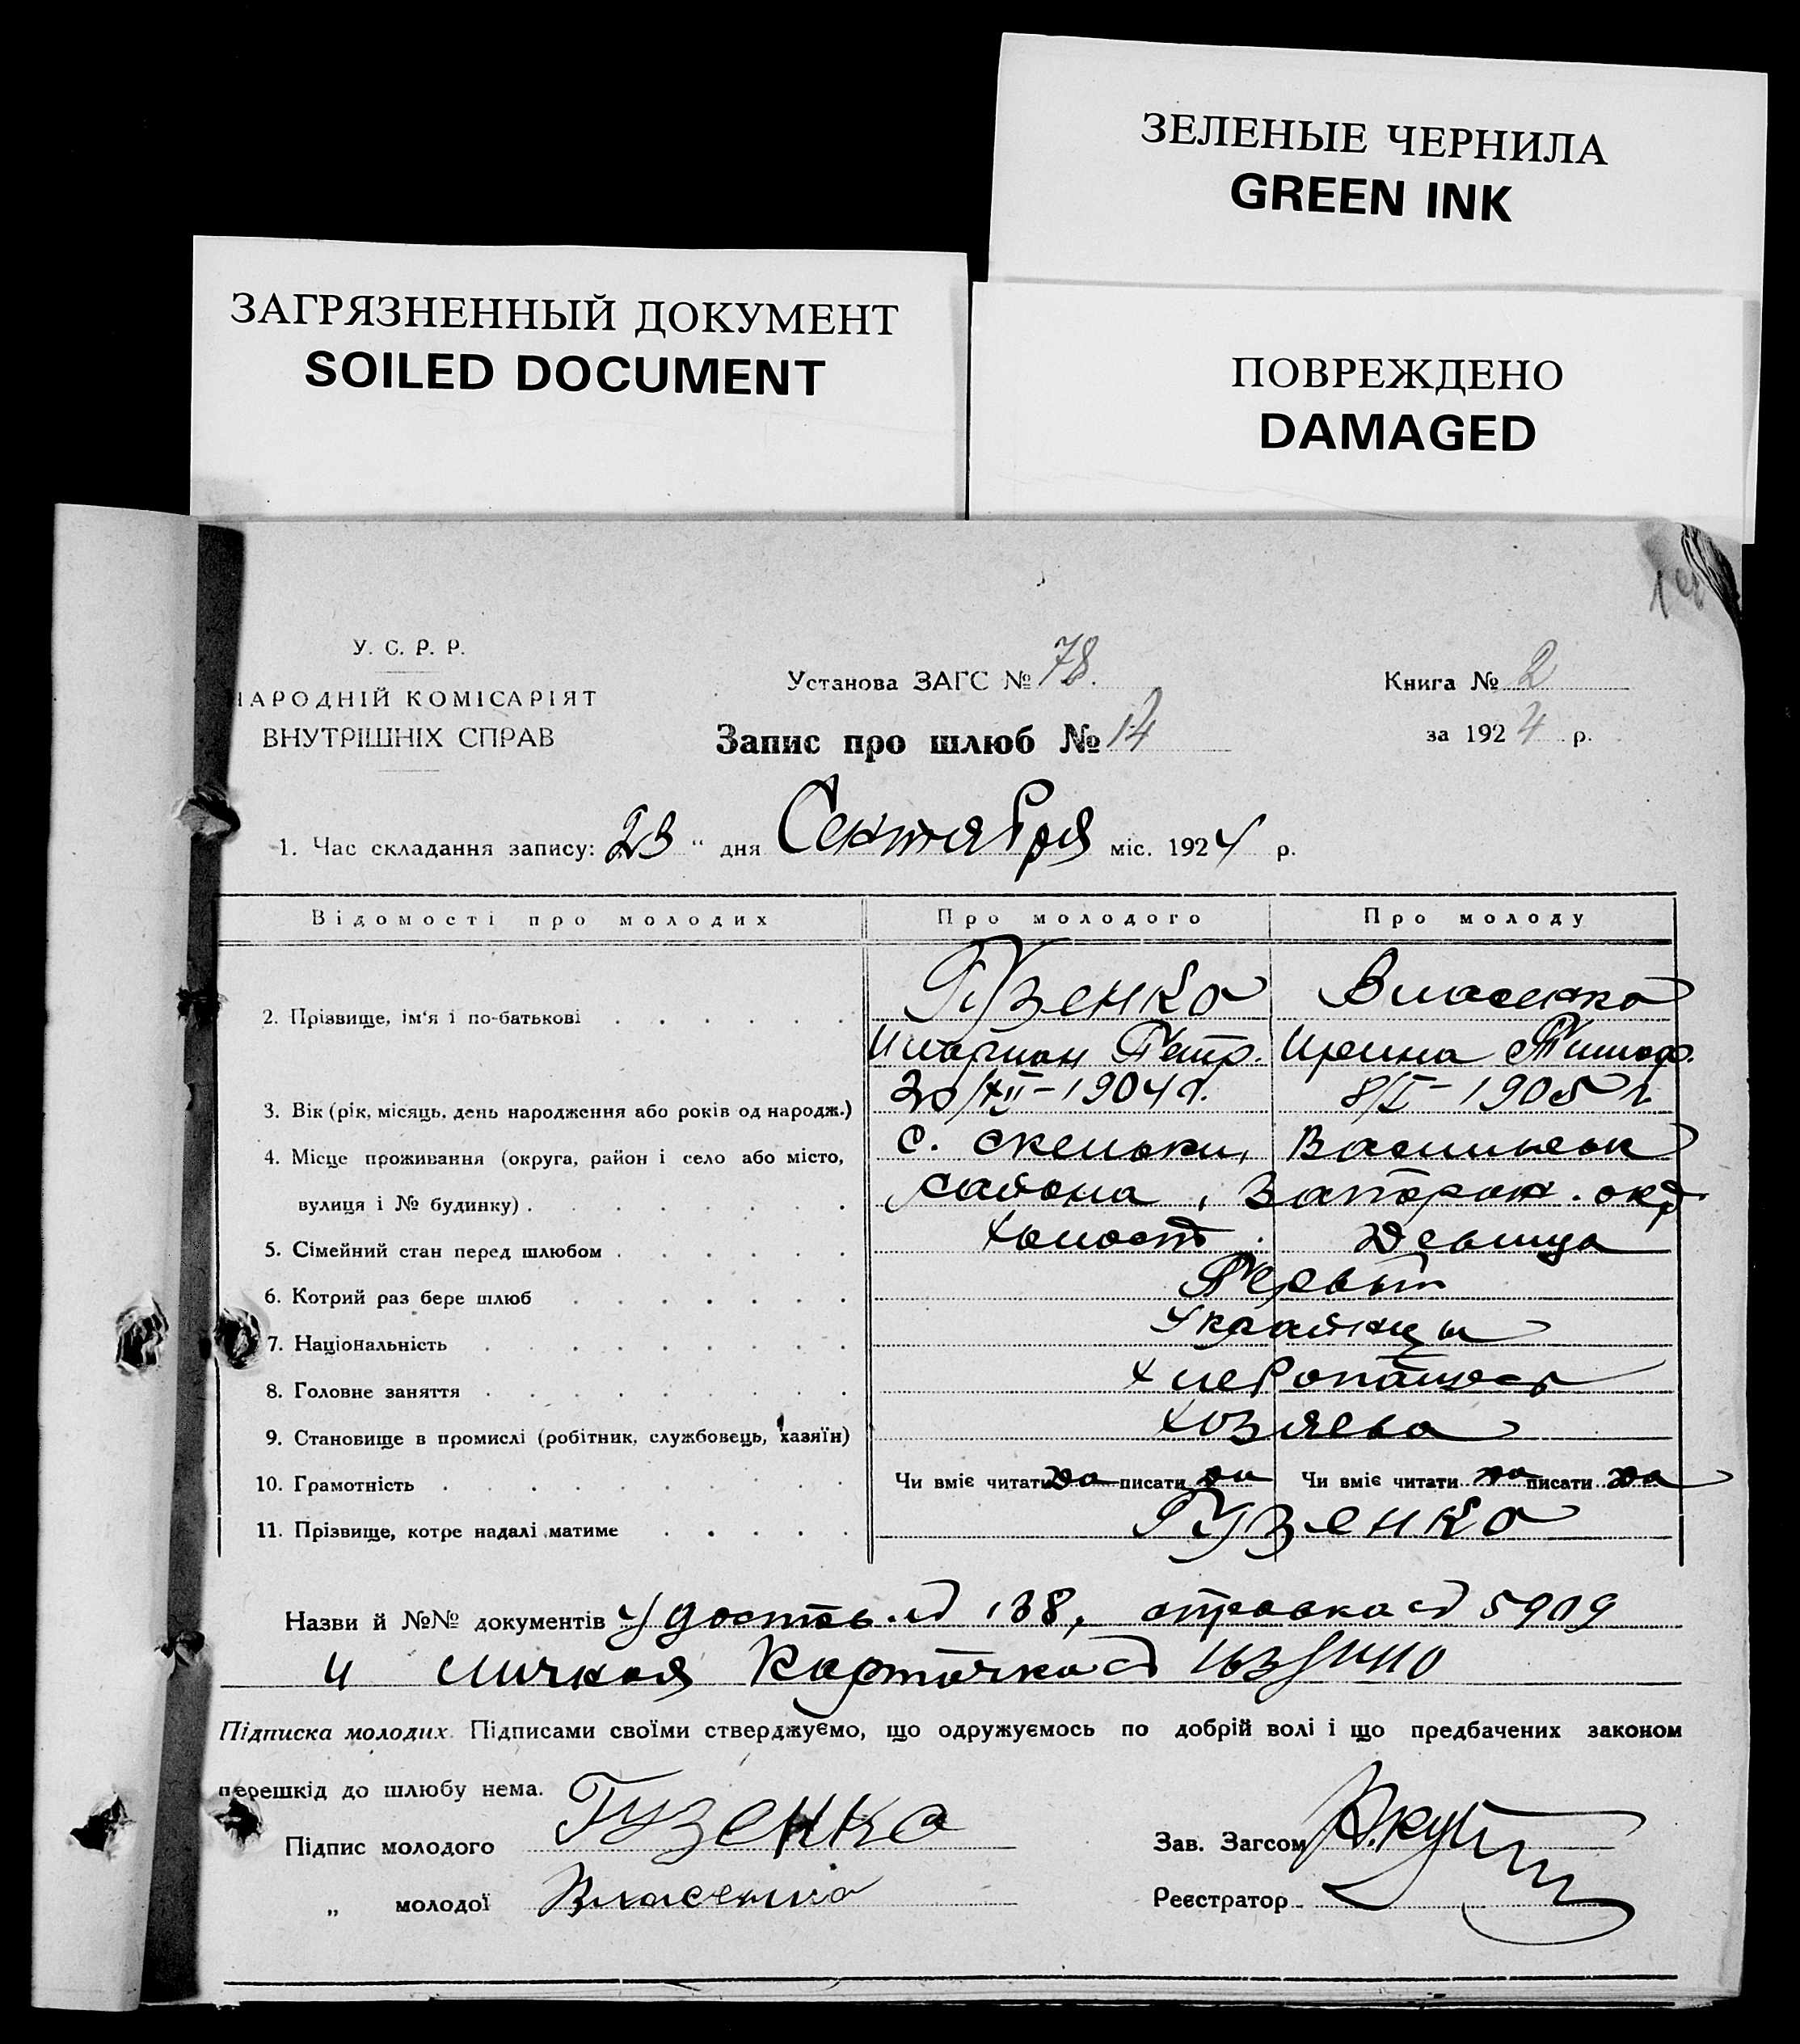 ЗЕЛЕНЫЕ ЧЕРНИЛА
GREEN INK
ЗАГРЯЗНЕННЫЙ ДОКУМЕНТ
SOILED DOCUMENT
ПОВРЕЖДЕНО
DAMAGED
У. С. Р. Р.
НАРОДНІЙ КОМІСАРІЯТ
ВНУТРІШНІХ СПРАВ
Установа ЗАГС № 78.
Запис про шлюб № 14
Книга № 2
за 1924 р.
1. Час складання запису: 23 " дня Сентября міс. 1924 р.
Відомості про молодих Про молодого Про молоду
2. Прізвище, ім'я і по-батькові Гузенко Власенко
Петр. Ирина Тимоф.
3. Вік (рік, місяць, день народження або років од народж.) 30/XII-1904 г. 8/I-1905 г.
4. Місце проживання (округа, район і село або місто, с. Скельки, Васильевск
вулиця і № будинку) района, Запорож. окр.
5. Сімейний стан перед шлюбом холост девица
6. Котрий раз бере шлюб Первый
7. Національність Украинцы
8. Головне заняття хлебопашество
9. Становище в промислі (робітник, службовець, хазяїн) хозяева
10. Грамотність Чи вміє читати да писати да Чи вміє читати да писати да
11. Прізвище, котре надалі матиме Гузенко
Назви й №№ документів Удостов. № 138, справка № 5909
и личная карточка №
Підписка молодих. Підписами своїми стверджуємо, що одружуємось по добрій волі і що предбачених законом
перешкід до шлюбу нема.
Підпис молодого Гузенко
Зав. Загсом
„ молодої Власенко
Реєстратор